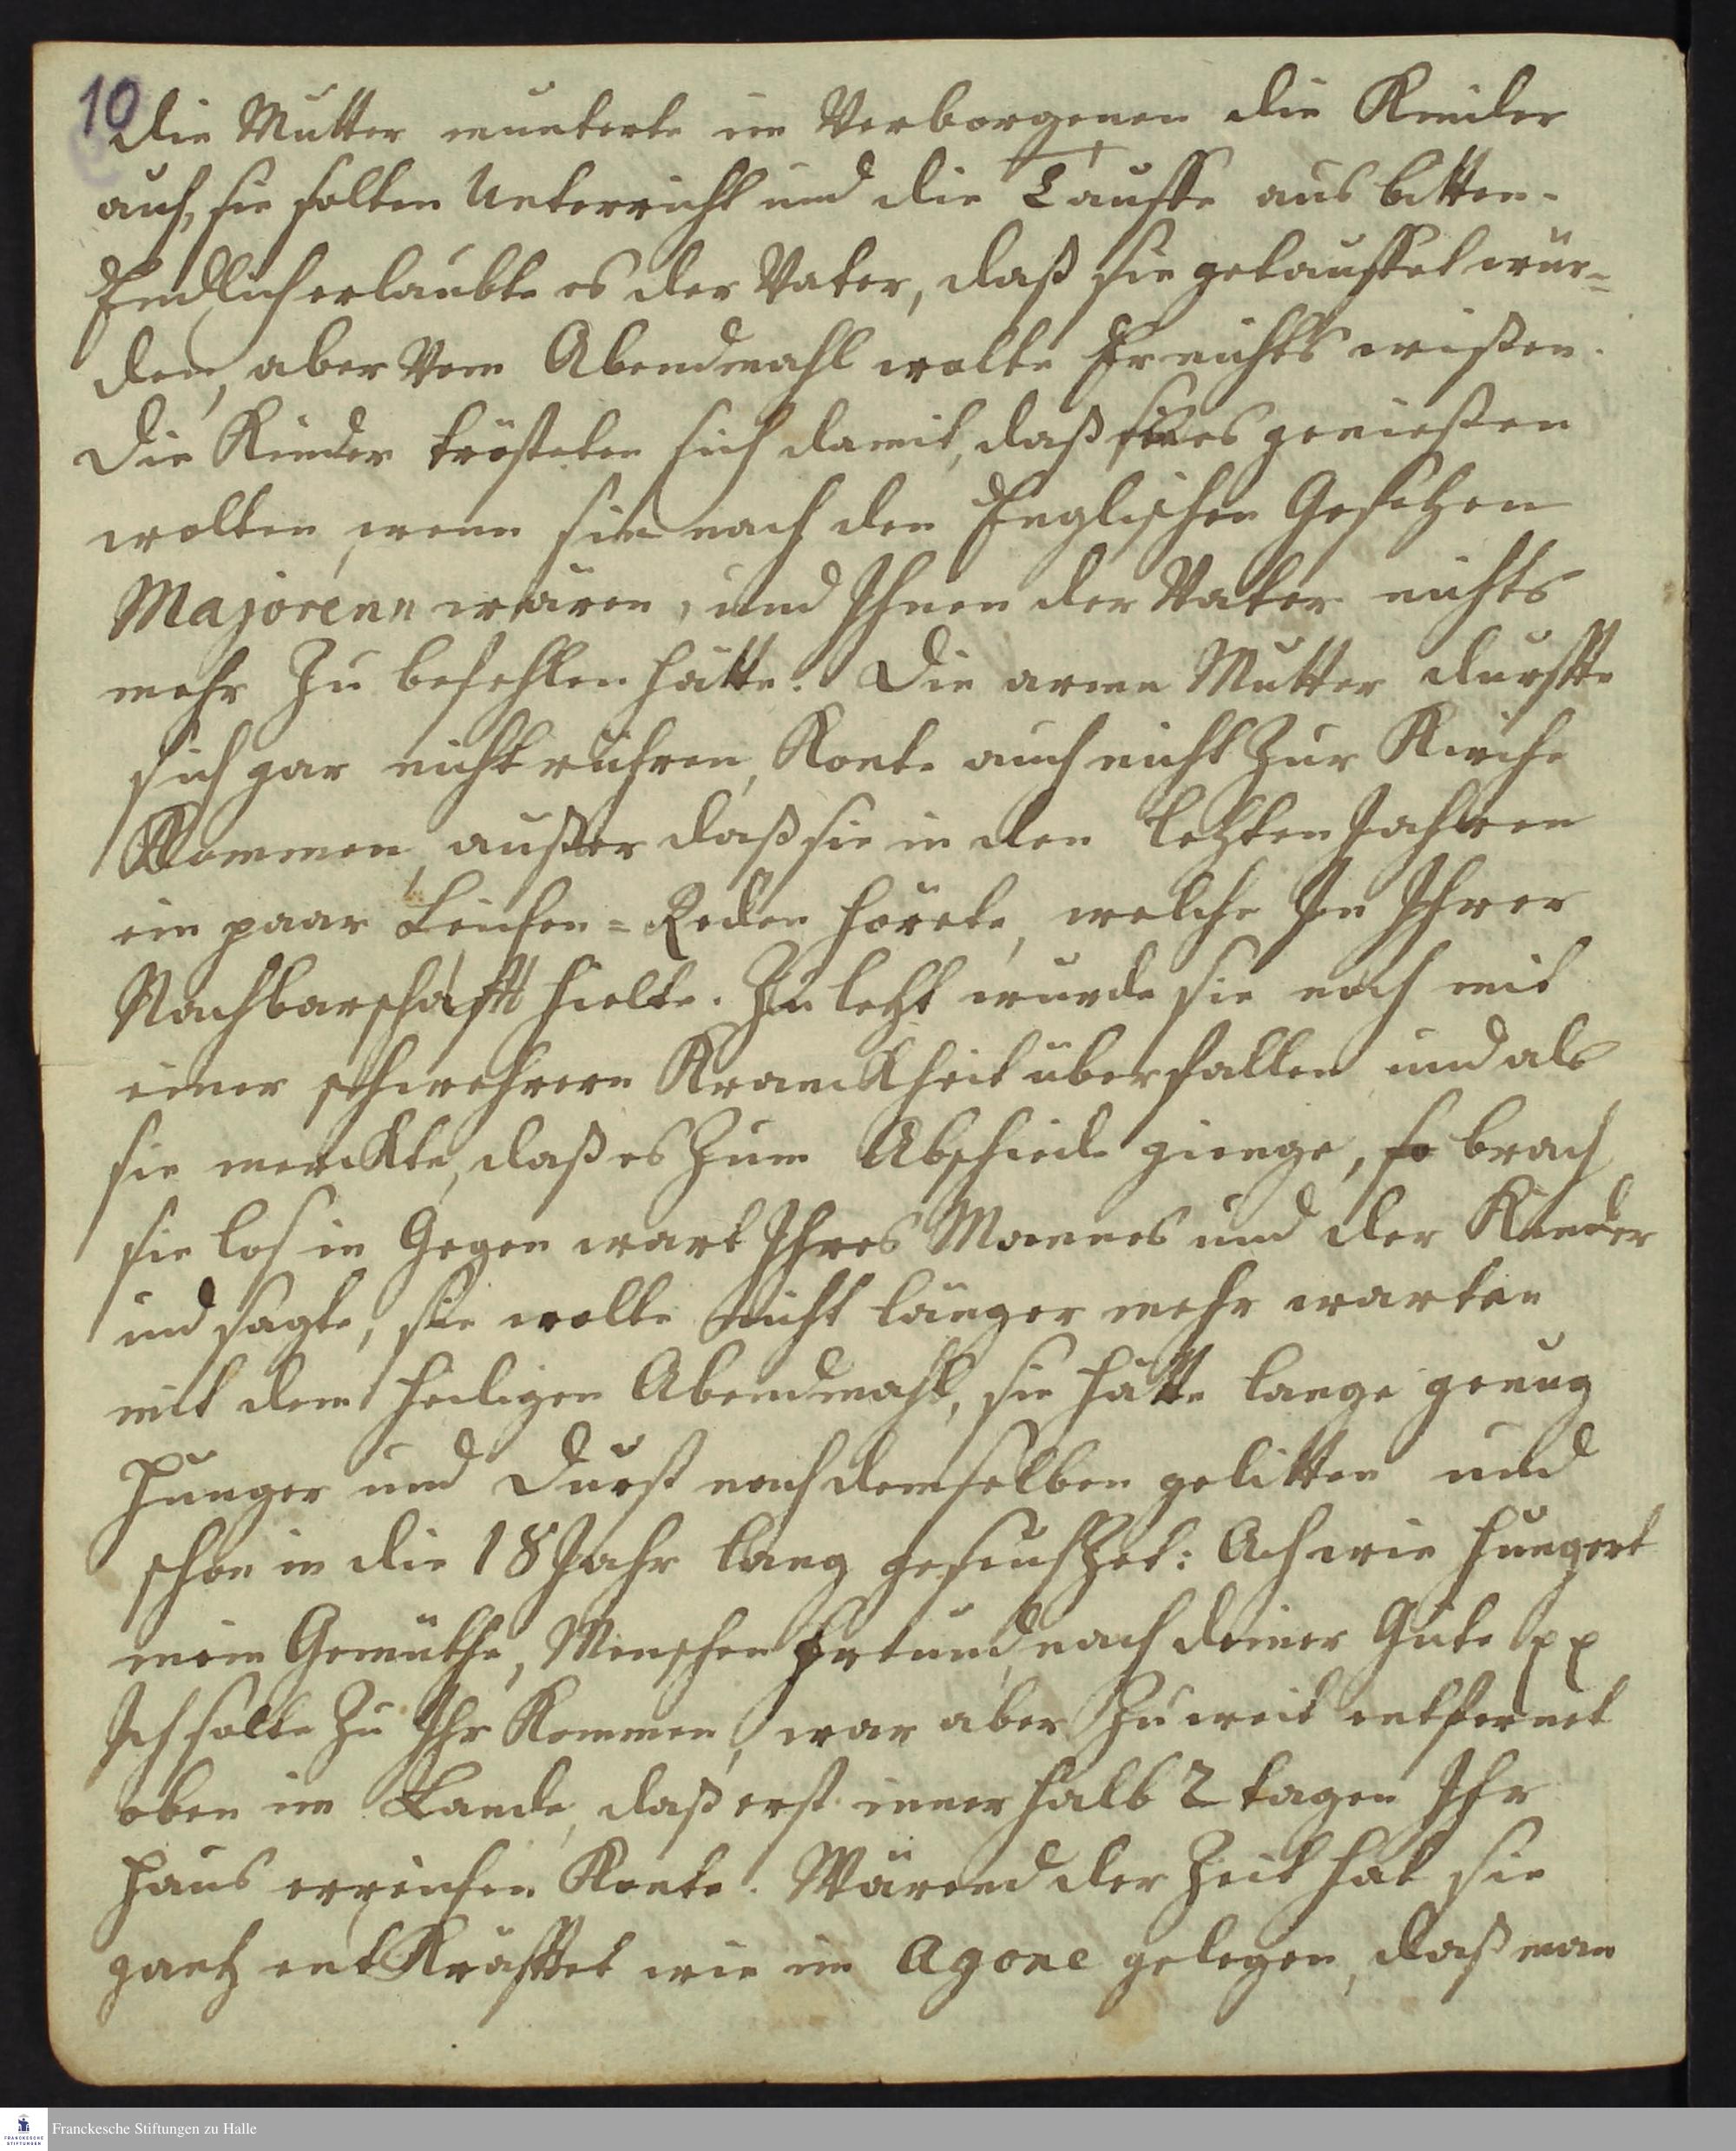 10
Die Mutter munterte im Verborgenen die Kinder
auf, sie solten Unterricht und die Tauffe aus bitten.
Endlich erlaubte es der Vater, daß sie getauffet wür=
den, aber vom Abendmahl wolte Er nichts wißen.
Die Kinder trösteten sich damit, daß sie es genießen
wolten, wenn sie nach den Englischen Gesetzen
Majorenn wären, und Ihnen der Vater nichts
mehr zu befehlen hätte. Die arme Mutter durffte
sich gar nicht rühren, Konte auch nicht zur Kirche
Kommen, außer daß sie in den letzten Jahren
ein paar Leichen=Reden hörete, welche In Ihrer
Nachbarschafft hielte. Zu letzt wurde sie noch mit
einer schwehren Kranckheit überfallen und als
sie merckte, daß es zum Abschiede gienge, so brach
sie los in Gegen wart Ihres Mannes und der Kinder
und sagte, sie wolte nicht länger mehr warten
mit dem heiligen Abendmahl, sie hätte lange genug
Hunger und Durst nach demselben gelitten und
schon in die 18 Jahr lang geseufzet: Ach wie hungert
mein Gemüthe, Menschen Freund, nach deiner Güte pp
Ich solte zu Ihr Kommen, war aber zu weit entfernet
oben im Lande, daß erst innerhalb 2 tagen Ihr
Haus erreichen Konte. Wärend der Zeit hat sie
gantz entKräfftet wie im Agone gelegen, daß man
Franckesche Stiftungen zu Halle
FRANCKESCHE
STIFTUNGEN